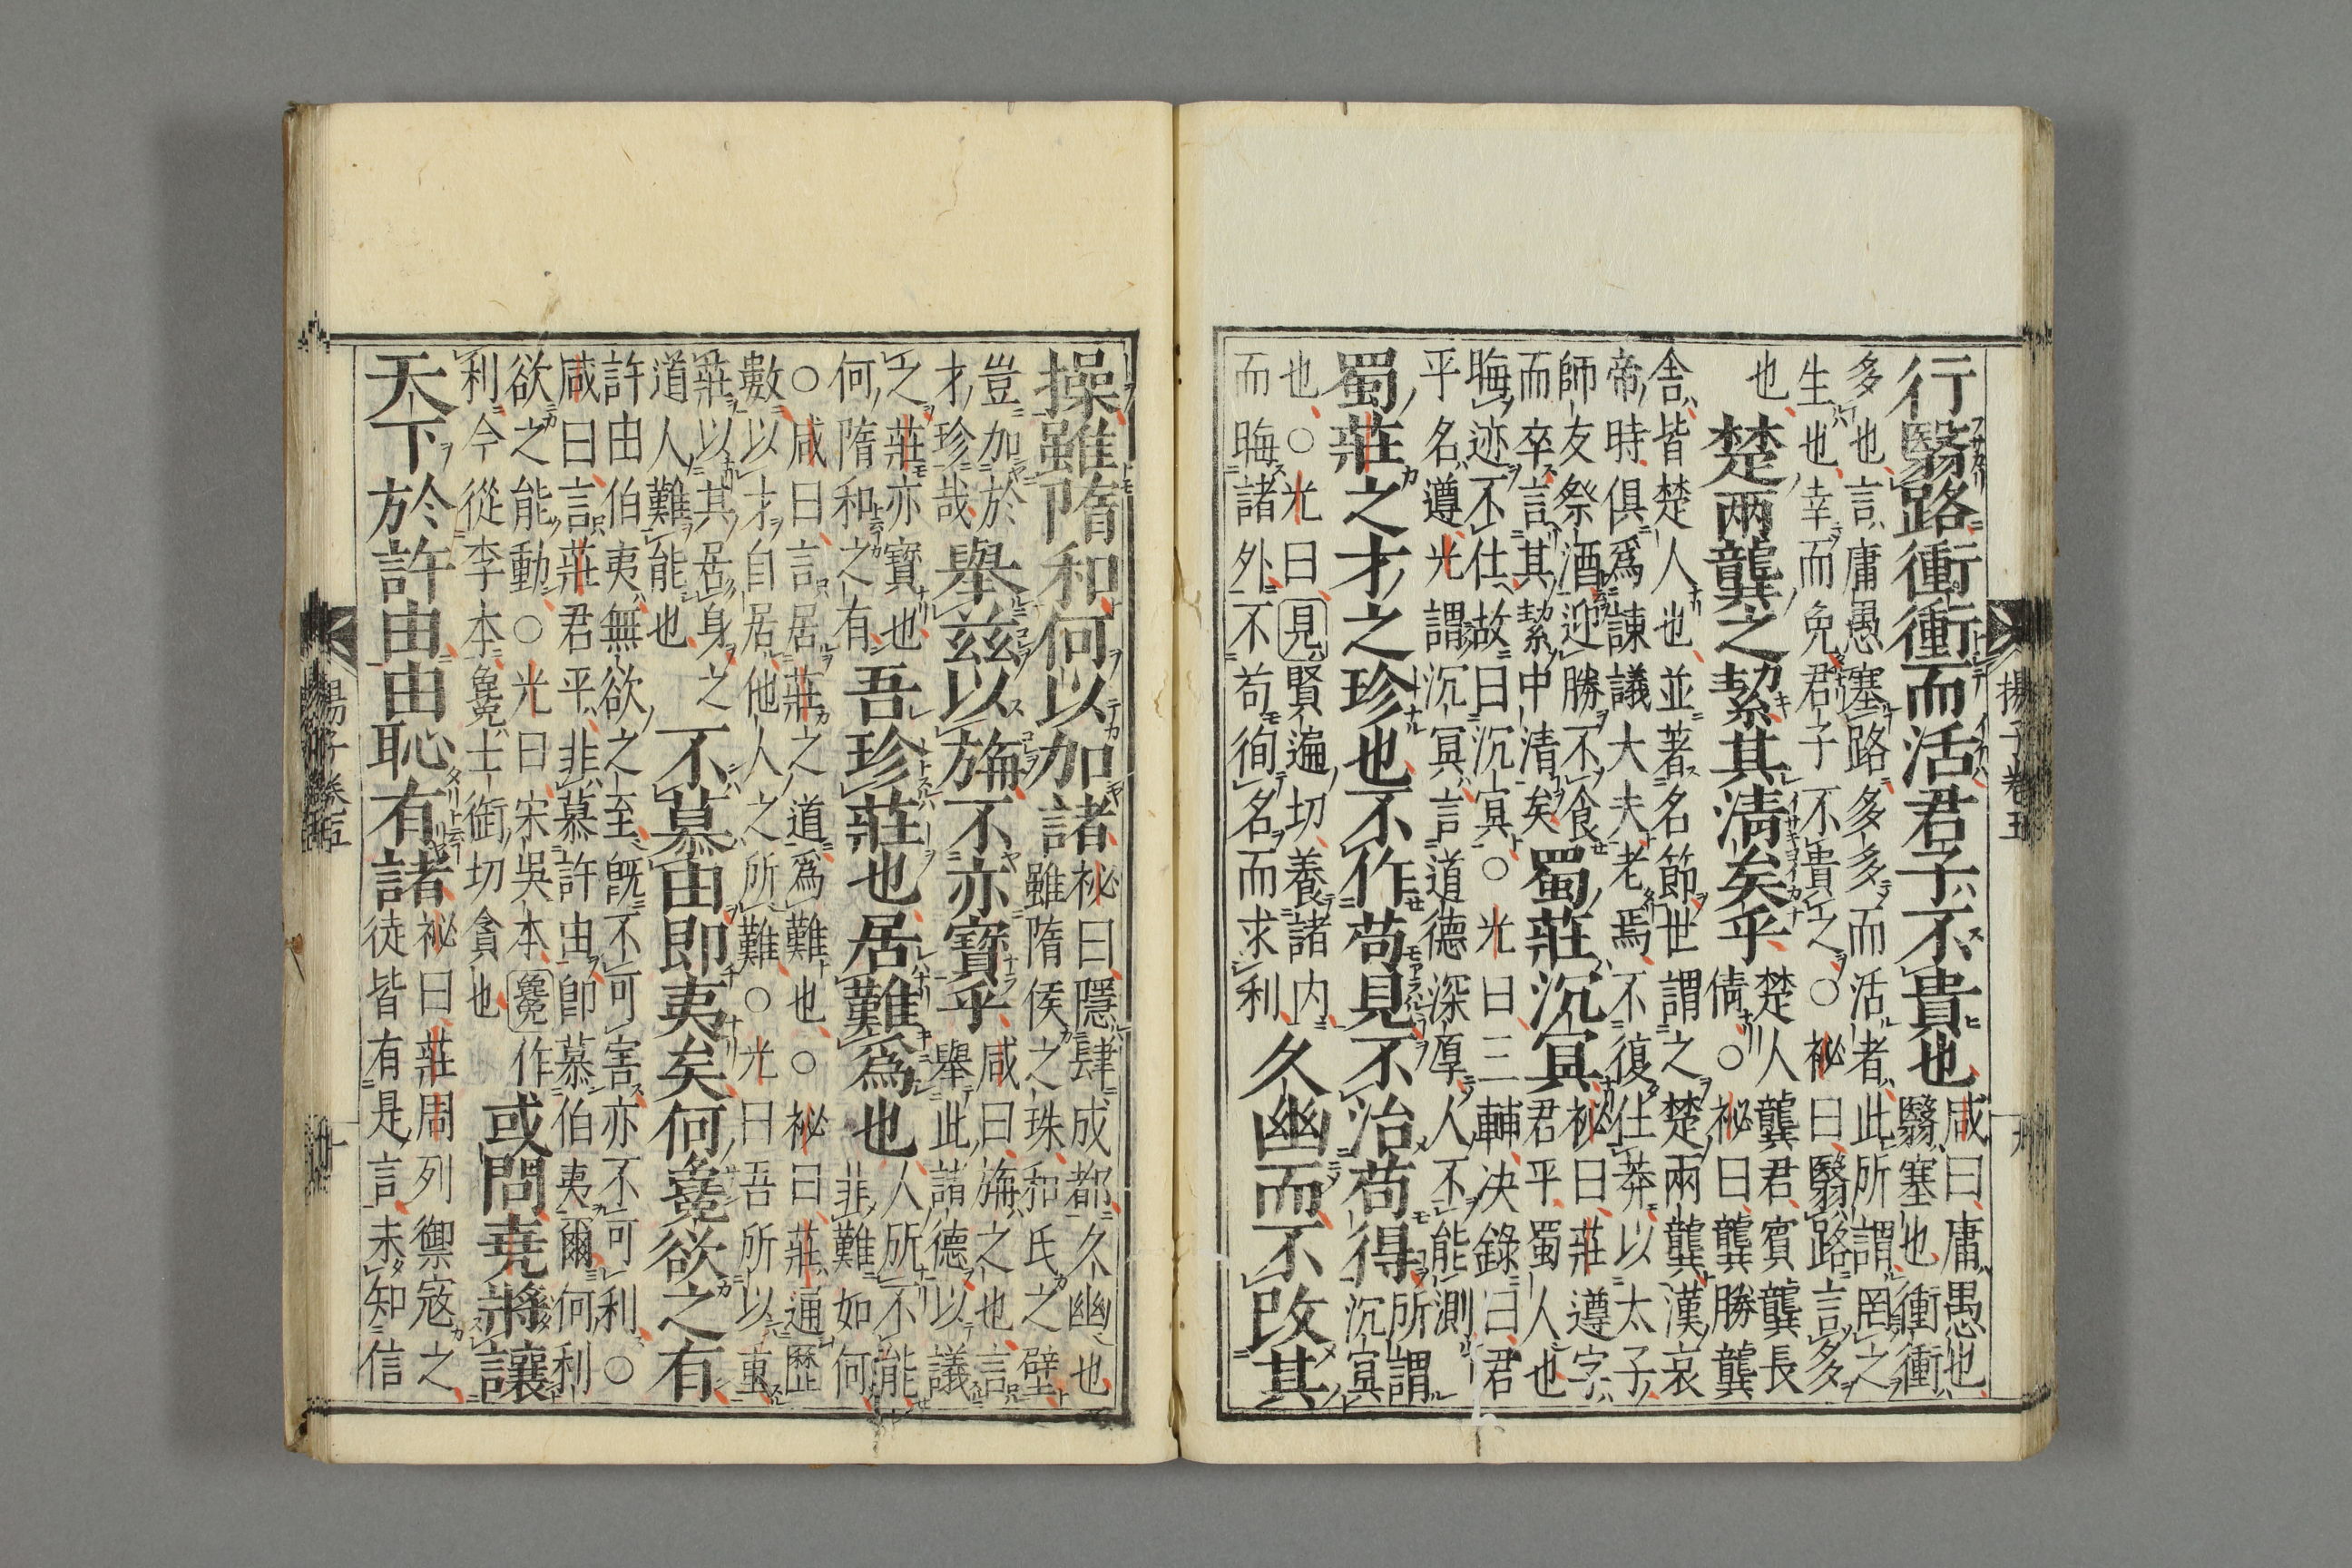 揚子卷五
十九
行翳路衝衝而活君子不貴也咸曰庸愚也
翳塞也衝衝
多也言庸愚塞路多多而活者此所謂罔之
生也幸而免君子不貴之○祕曰翳路言多
也
楚兩龔之絜其清矣乎楚人龔君賓龔長
倩○祕曰龔勝龔
舍皆楚人也並著名節世謂之楚兩龔漢哀
帝時俱爲諫議大夫老焉不復仕莽以太子
師友祭酒迎勝不食
而卒言其絜中清矣
蜀莊沉冥祕曰莊遵字
君平蜀人也
晦迹不仕故曰沉冥○光曰三輔决錄曰君
平名遵光謂沉冥言道德深厚人不能測
蜀莊之才之珍也不作苟見不治苟得所謂
沉冥
也○光曰見賢遍切養諸内
而晦諸外不苟徇名而求利
久幽而不改其
操雖隋和何以加諸祕曰隱肆成都久幽也
雖隋侯之珠和氏之璧
豈加於
才珍哉
舉茲以旃不亦寶乎咸曰旃之也言
舉此諸德以議
之莊亦寶也
何隋和之有
吾珍莊也居難爲也人所不能
非難如何
○咸曰言居莊之道爲難也○祕曰莊通歷
數以才自居他人之所難○光曰吾所以重
莊以其居身之
道人難能也
不慕由即夷矣何毚欲之有
許由伯夷無欲之至旣不可害亦不可利○
咸曰言莊君平非慕許由卽慕伯夷爾何利
欲之能動○光曰宋吳本毚作
利今從李本毚士銜切貪也
或問堯將讓
天下於許由由恥有諸祕曰莊周列禦寇之
徒皆有是言未知信
揚子卷五